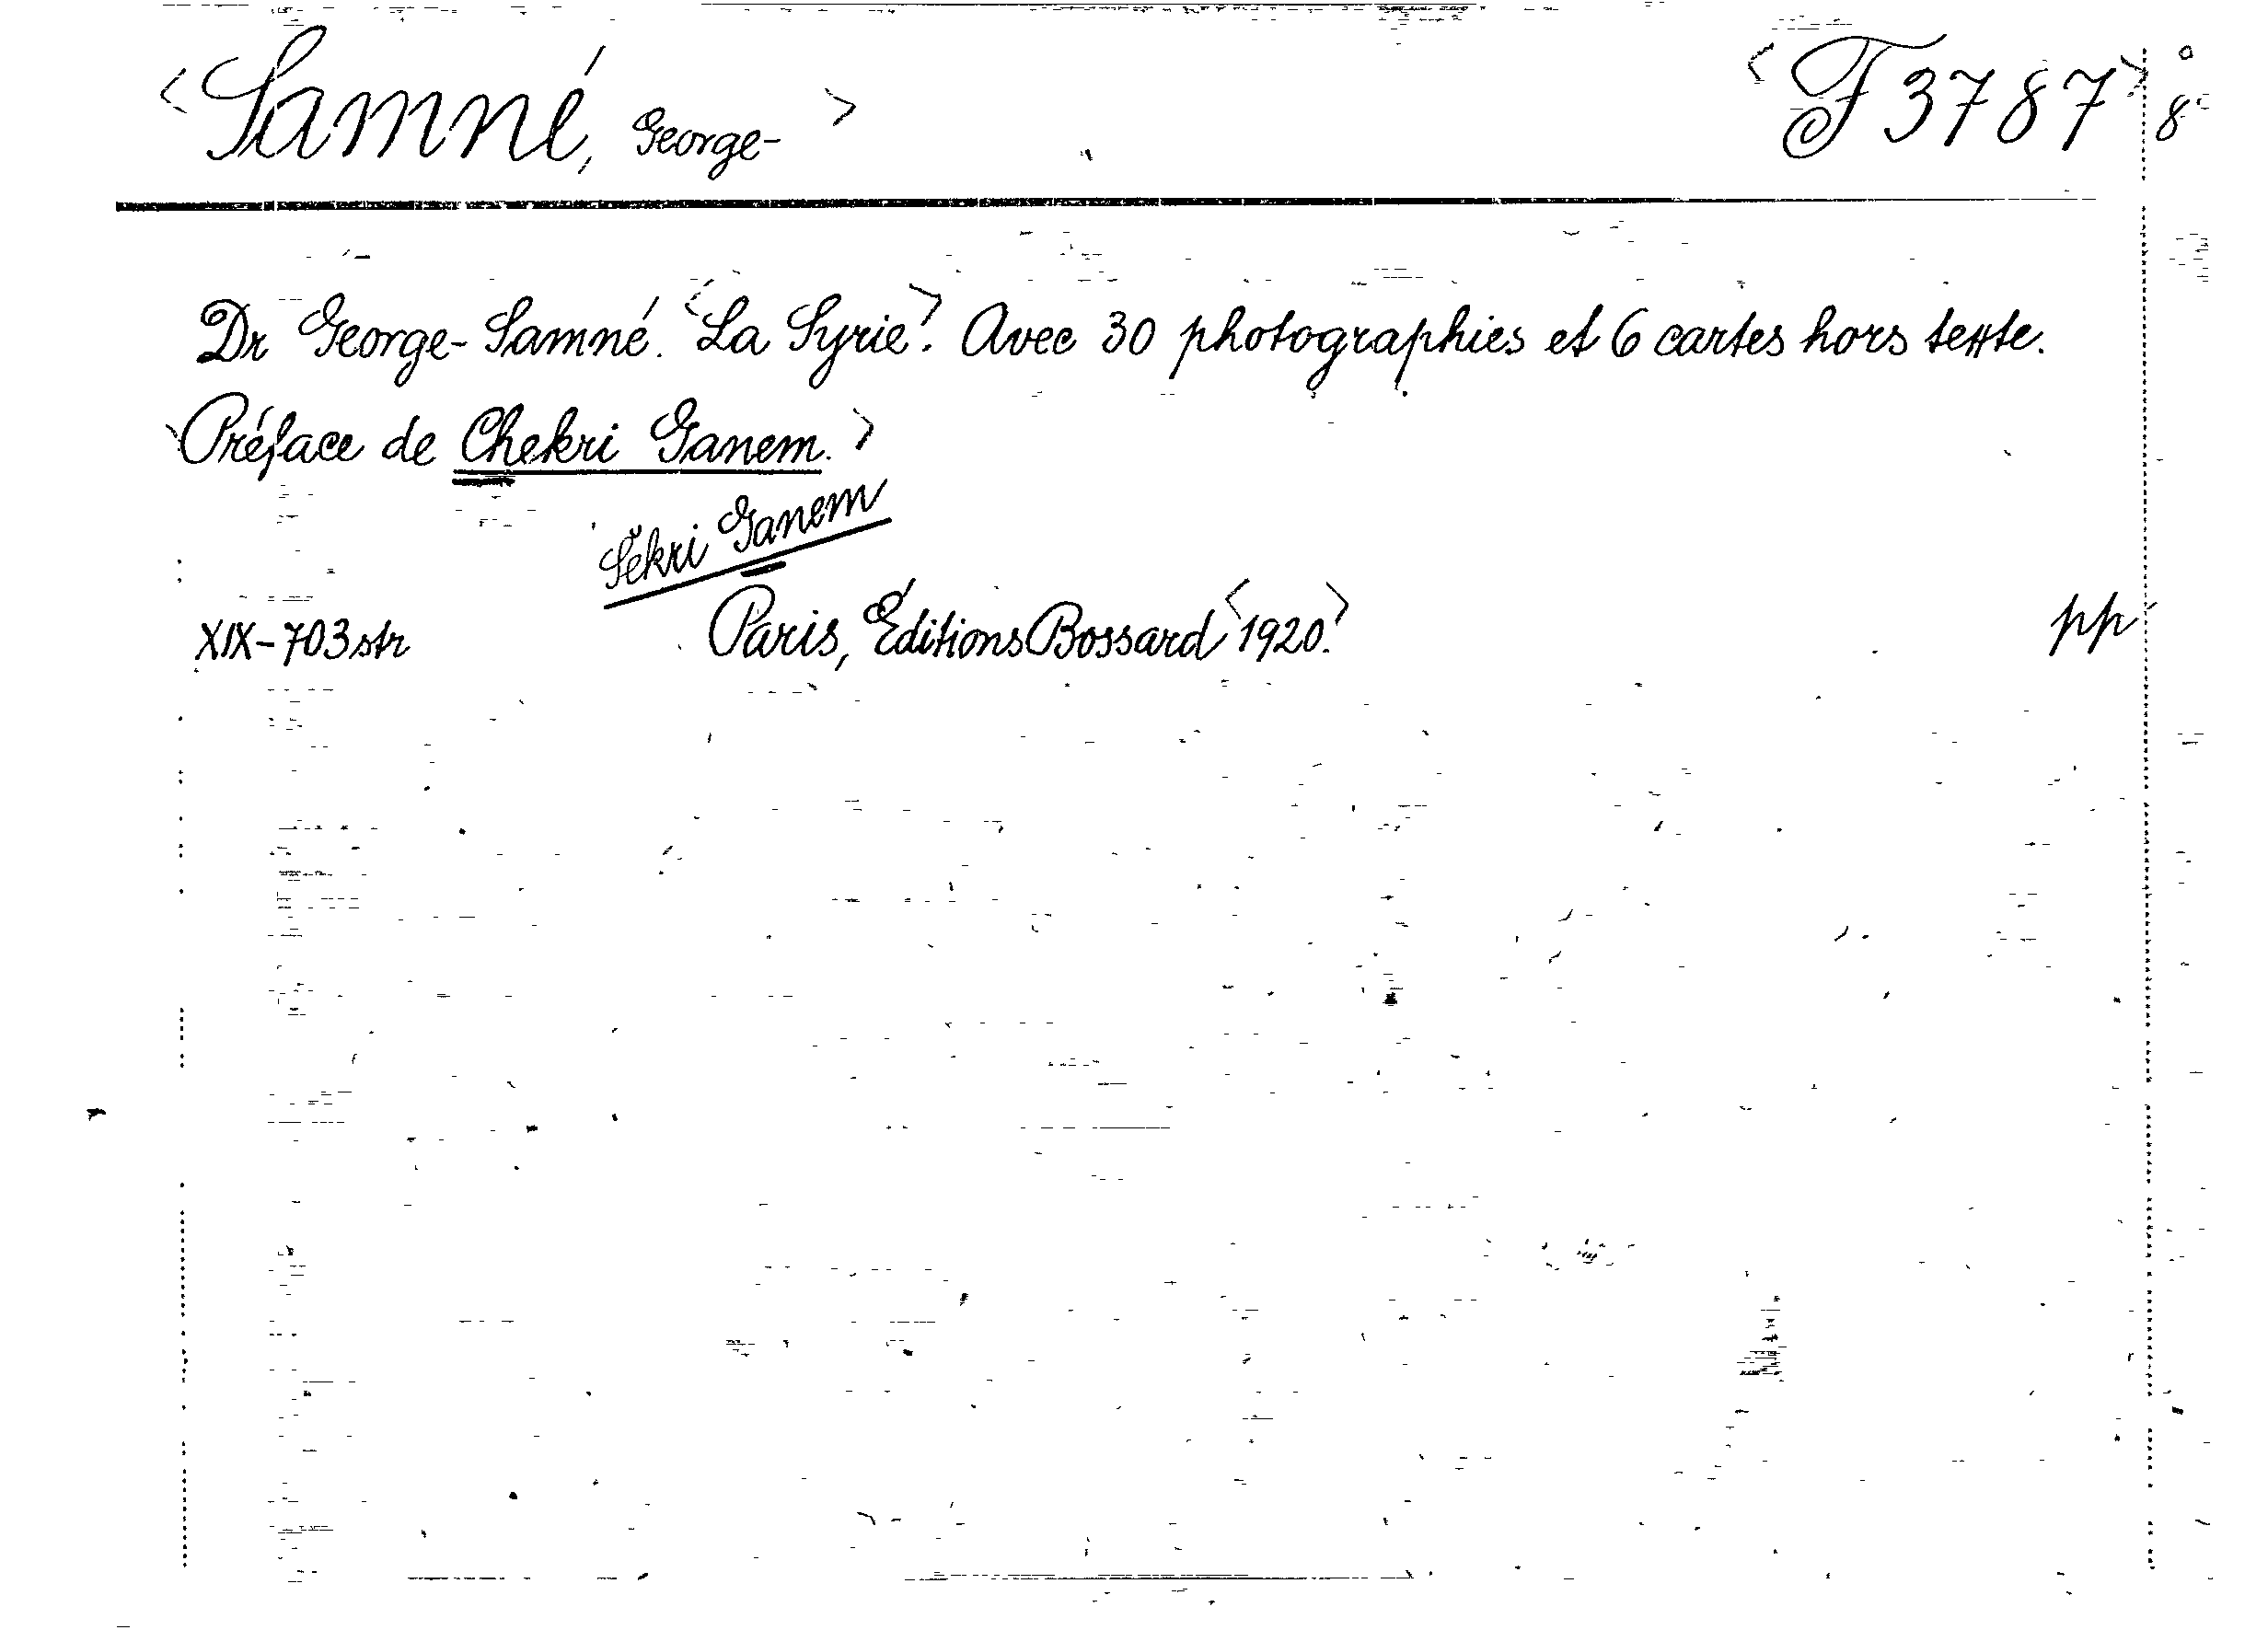 <Samné, George-> <F 3787> 8°
Dr George-Samné. <La Syrie>. Avec 30 photographies et 6 cartes hors texte.
Préface de Chekri Ganem.>
Šekri Ganem
XIX-703 str Paris, Éditions Bossard <1920.> pp